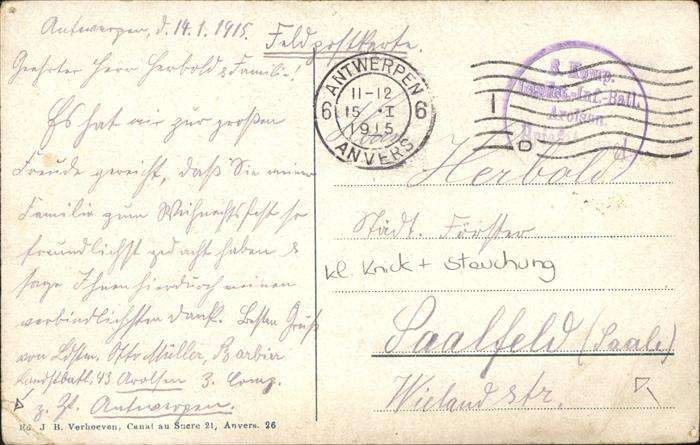 Antwerpen, d. 14.1.1915.
Feldpostkarte.
Geehrter Herr Herbold & Familie!
Es hat mir zur großen
Freude gereicht, daß Sie meiner
Familie zum Weihnachtsfest so
freundlichst gedacht haben &
sage Ihnen hierdurch meinen
verbindlichsten Dank. Besten Gruß
von Ldstm. Otto Müller, Barbier
Landstbatl. 43 Arolsen 3. Comp.
z. Zt. Antwerpen.
Ed. J. B. Verhoeven, Canal au Sucre 21, Anvers. 26
ANTWERPEN
6 11-12 6
15 I
1915
ANVERS
Komp.
Inf.-Batl.
Arolsen
Herrn
Herbold
Städt. Förster
kl. Knick + Stauchung
Saalfeld (Saale)
Wielandstr.